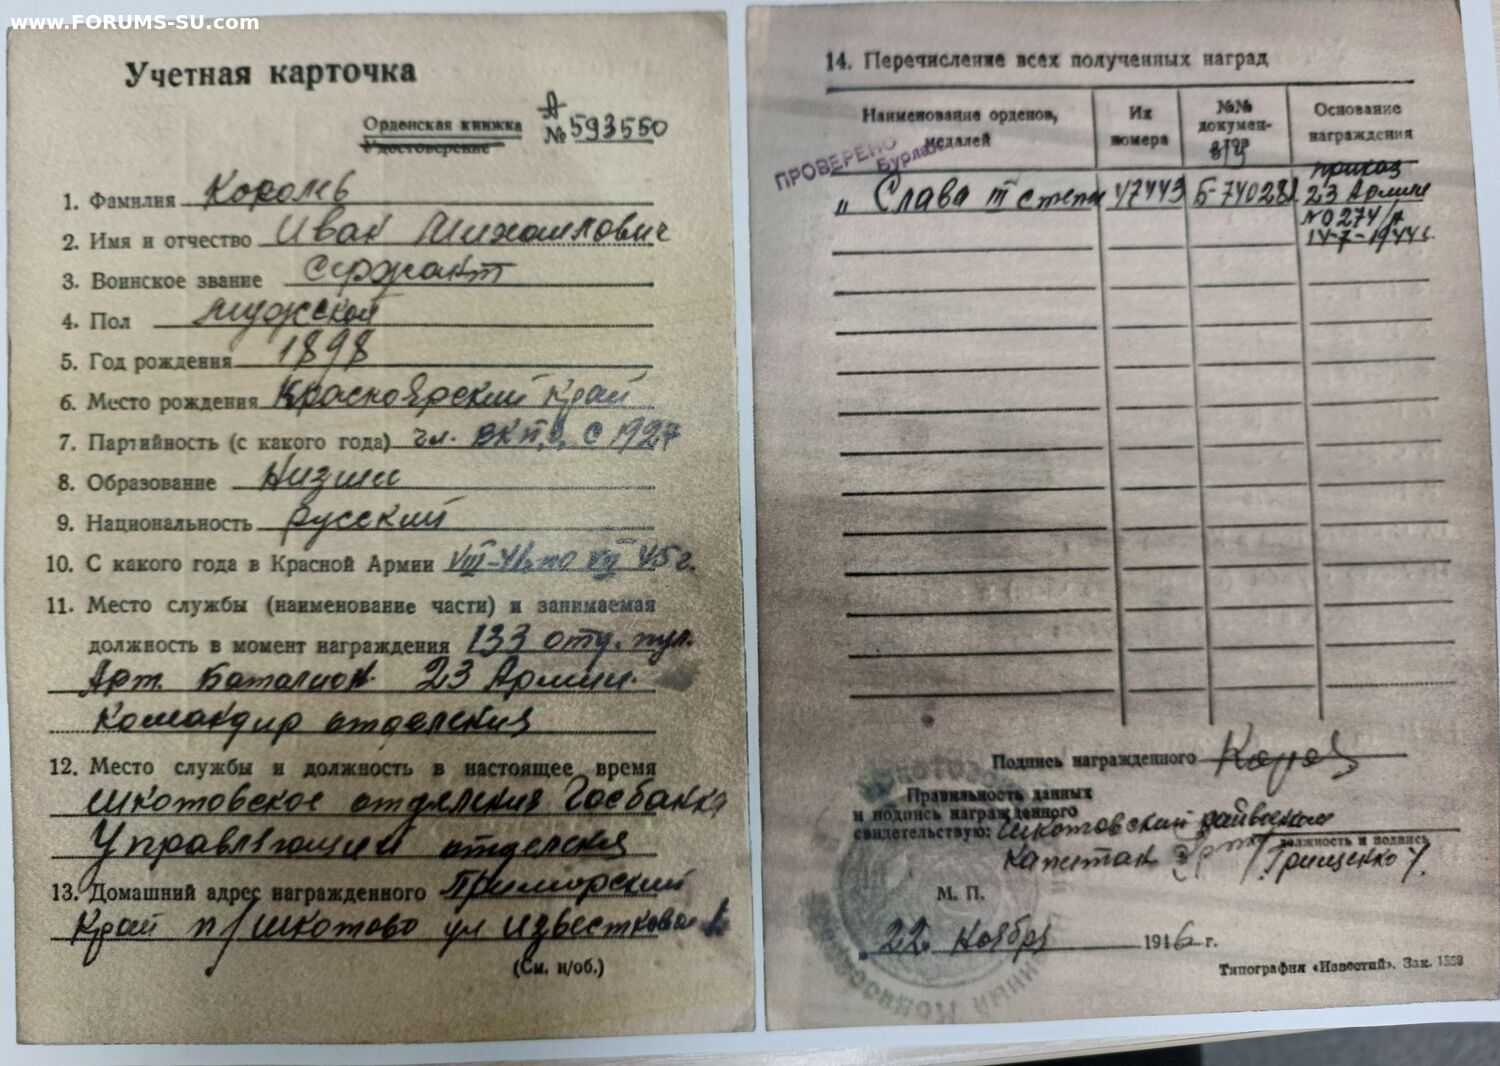 www.FORUMS-SU.com
Учетная карточка
Орденская книжка А
Удостоверение № 593550
1. Фамилия Король
2. Имя и отчество Иван Михаилович
3. Воинское звание Сержант
4. Пол мужской
5. Год рождения 1898
6. Место рождения Красноярский край
7. Партийность (с какого года) чл. ВКП.б. с 1927
8. Образование Низшее
9. Национальность русский
10. С какого года в Красной Армии VIII-41 по XII 45 г.
11. Место службы (наименование части) и занимаемая
должность в момент награждения 133 отд. пул.
Арт. Баталион. 23 Армии.
командир отделения
12. Место службы и должность в настоящее время
Шкотовское отделения Госбанка
Управляющий отделения
13. Домашний адрес награжденного Приморский
Край п/Шкотово ул Известковая
(См. н/об.)
14. Перечисление всех полученных наград
Наименование орденов, медалей
Их номера
№№ докумен-тов
Основание награждения
ПРОВЕРЕНО
„ Слава III степен 47443 Б-740282 приказ
23 Армии
№0274/н
14-7-1944 г.
Подпись награжденного Король
Правильность данных
и подпись награжденного
свидетельствую: Шкотовский райвоенком
должность и подпись
капитан /Грищенко/
М. П.
„22 ноября 1946 г.
Типография «Известий». Зак. 1359